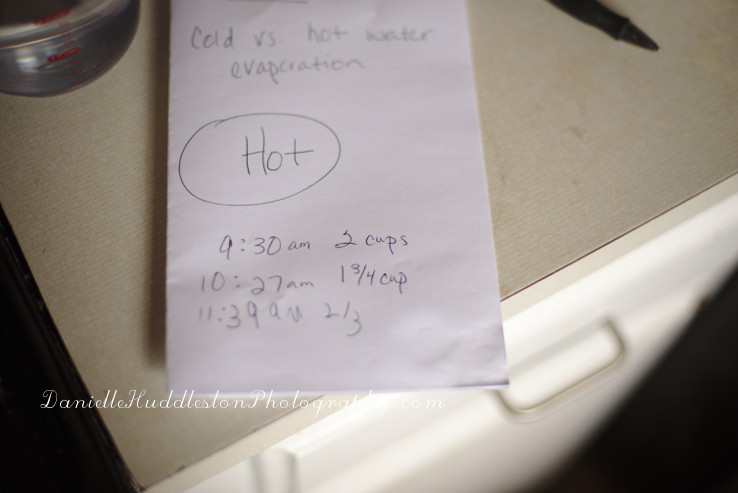 Cold vs. hot water
evaporation
Hot
9:30am 2 cups
10:27am 1 3/4 cup
11:39am 2/3
DanielleHuddlestonPhotography.com